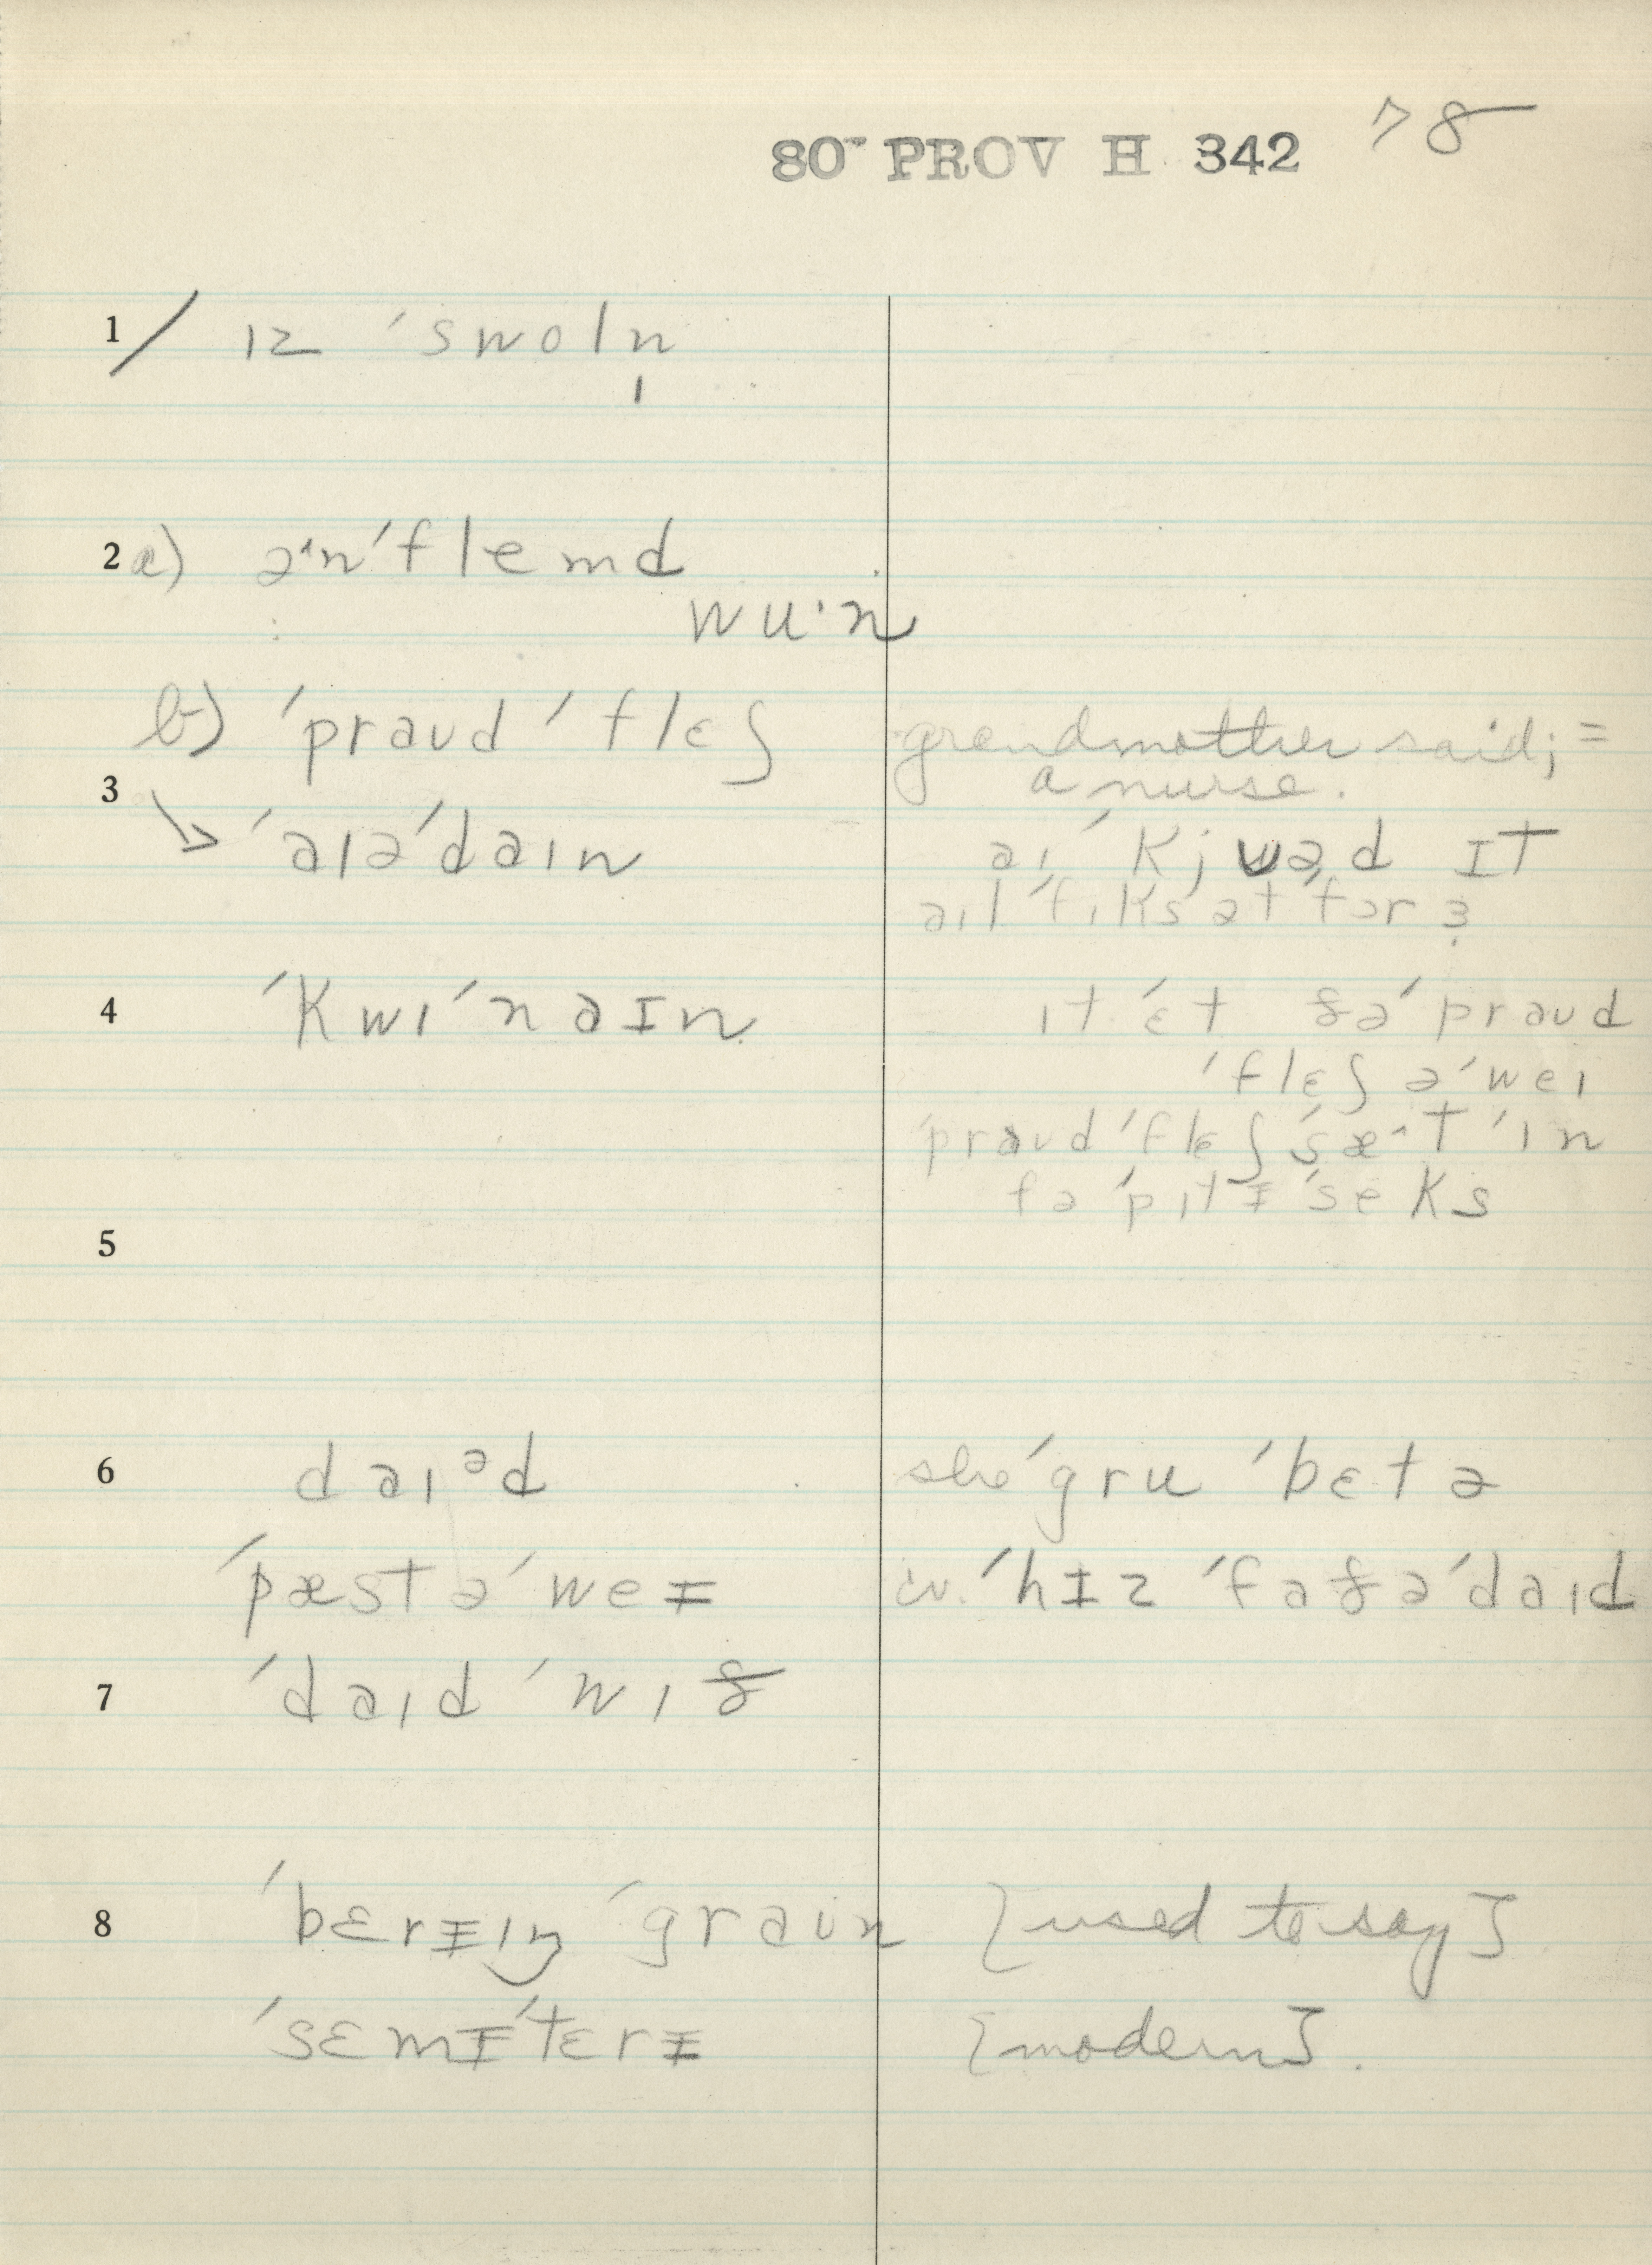 80- PROV H 342 78
1/ ɪz ˈswoln̩
2 a) ənˈflemd
wuˑn
b) ˈpraʊdˈflɛʃ grandmother said; =
3 a nurse.
↘ ˈaɪəˈdaɪn aɪ ˈkjuəd ɪt
aɪl ˈfɪks ət fər ɜ
4 ˈkwɪˈnaɪn ɪt ˈɛt ðə ˈpraʊd
ˈflɛʃ əˈweɪ
ˈpraʊdˈflɛʃ ˈsæˑt ˈɪn
fə ˈpɪtɨ ˈseks
5
6 daɪᵊd she ˈgru ˈbɛtə
ˈpæst əˈweɨ w. ˈhɪz ˈfaðə ˈdaɪd
7 ˈdaɪd ˈwɪð
8 ˈbɛrɨɪŋ ˈgraʊn [used to say]
ˈsɛmɨˈtɛrɨ [modern].